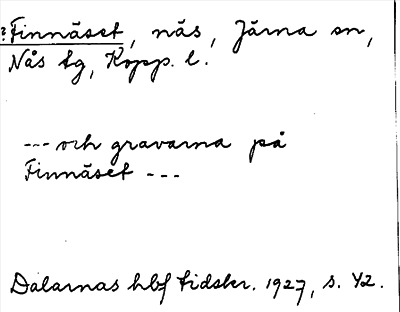 ?Finnäset, näs, Järna sn,
Nås tg, Kopp. l.
--- och gravarna på
Finnäset ---
Dalarnas hbf tidskr. 1927, s. 42.